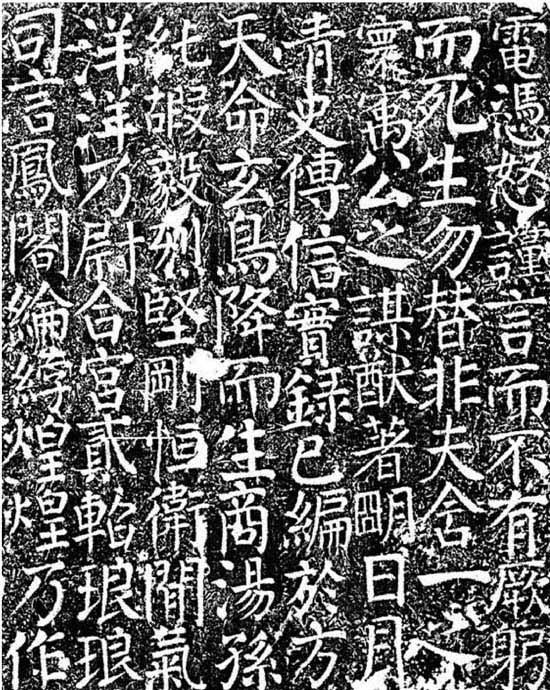 電憑怒謹言而不有厥躬
而死生勿替非夫含一
寰寓公之謀猷著朙日月
青史傳信實錄已編於方
天命玄鳥降而生商湯孫
純嘏毅烈堅剛恒衛間氣
洋洋乃尉合宮貳軺琅琅
司言鳳閣綸綍煌煌乃作